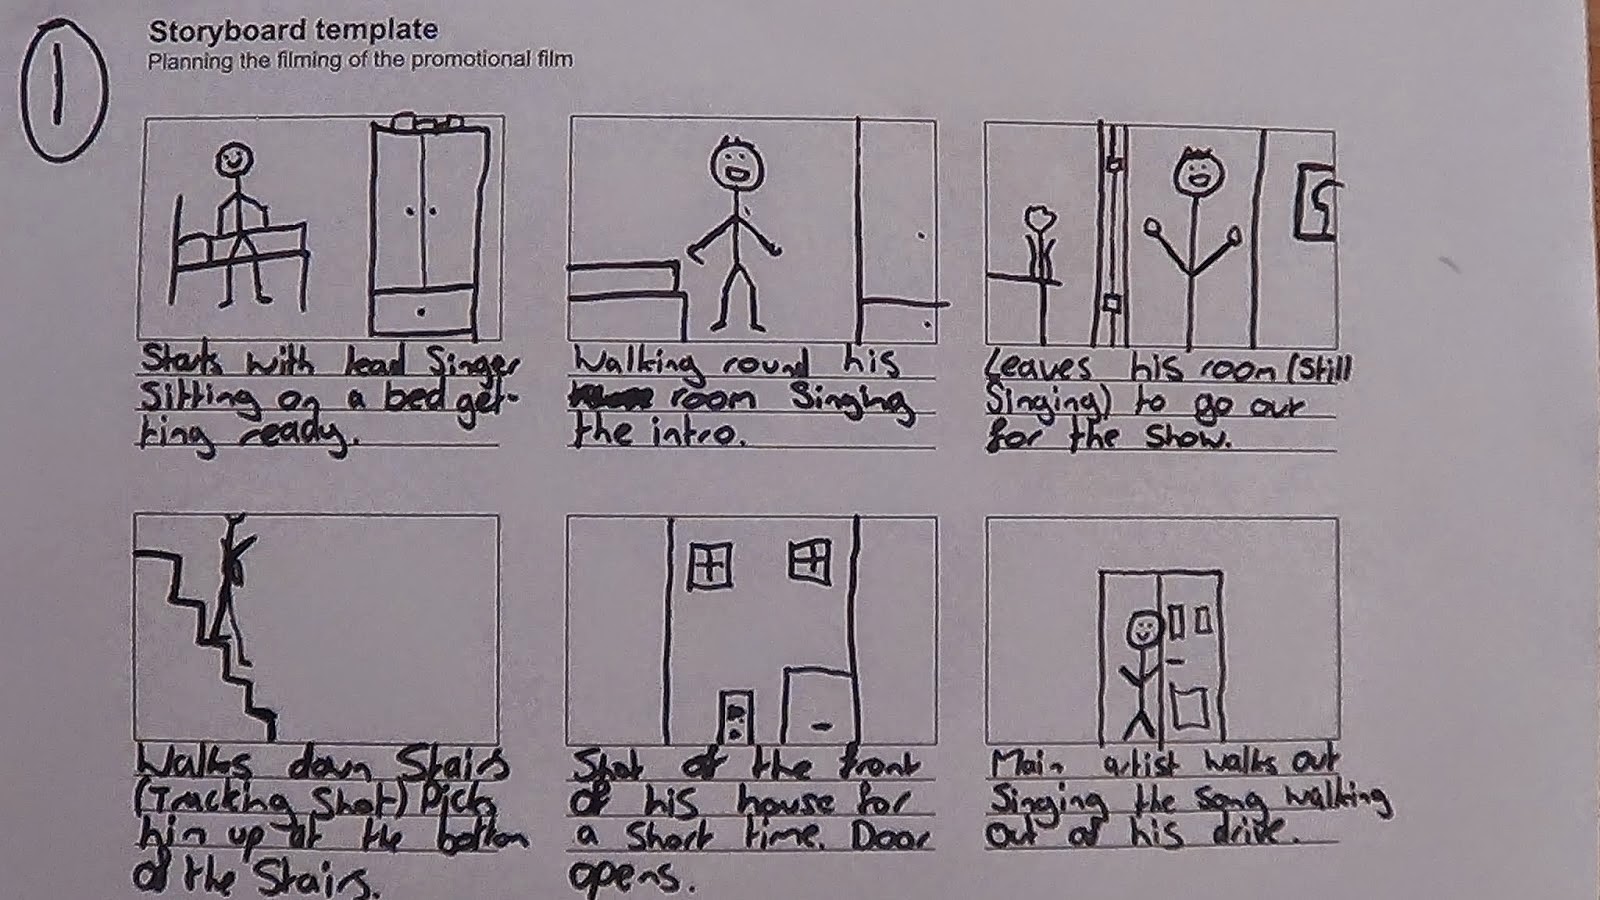 1
Storyboard template
Planning the filming of the promotional film
Starts with lead Singer
Sitting on a bed get-
ting ready.
Walking round his
room Singing
the intro.
Leaves his room (Still
Singing) to go out
for the show.
Walks down Stairs
(Tracking Shot) Picks
him up at the bottom
of the Stairs.
Shot of the front
of his house for
a short time. Door
opens.
Main artist walks out
Singing the song walking
out of his drive.